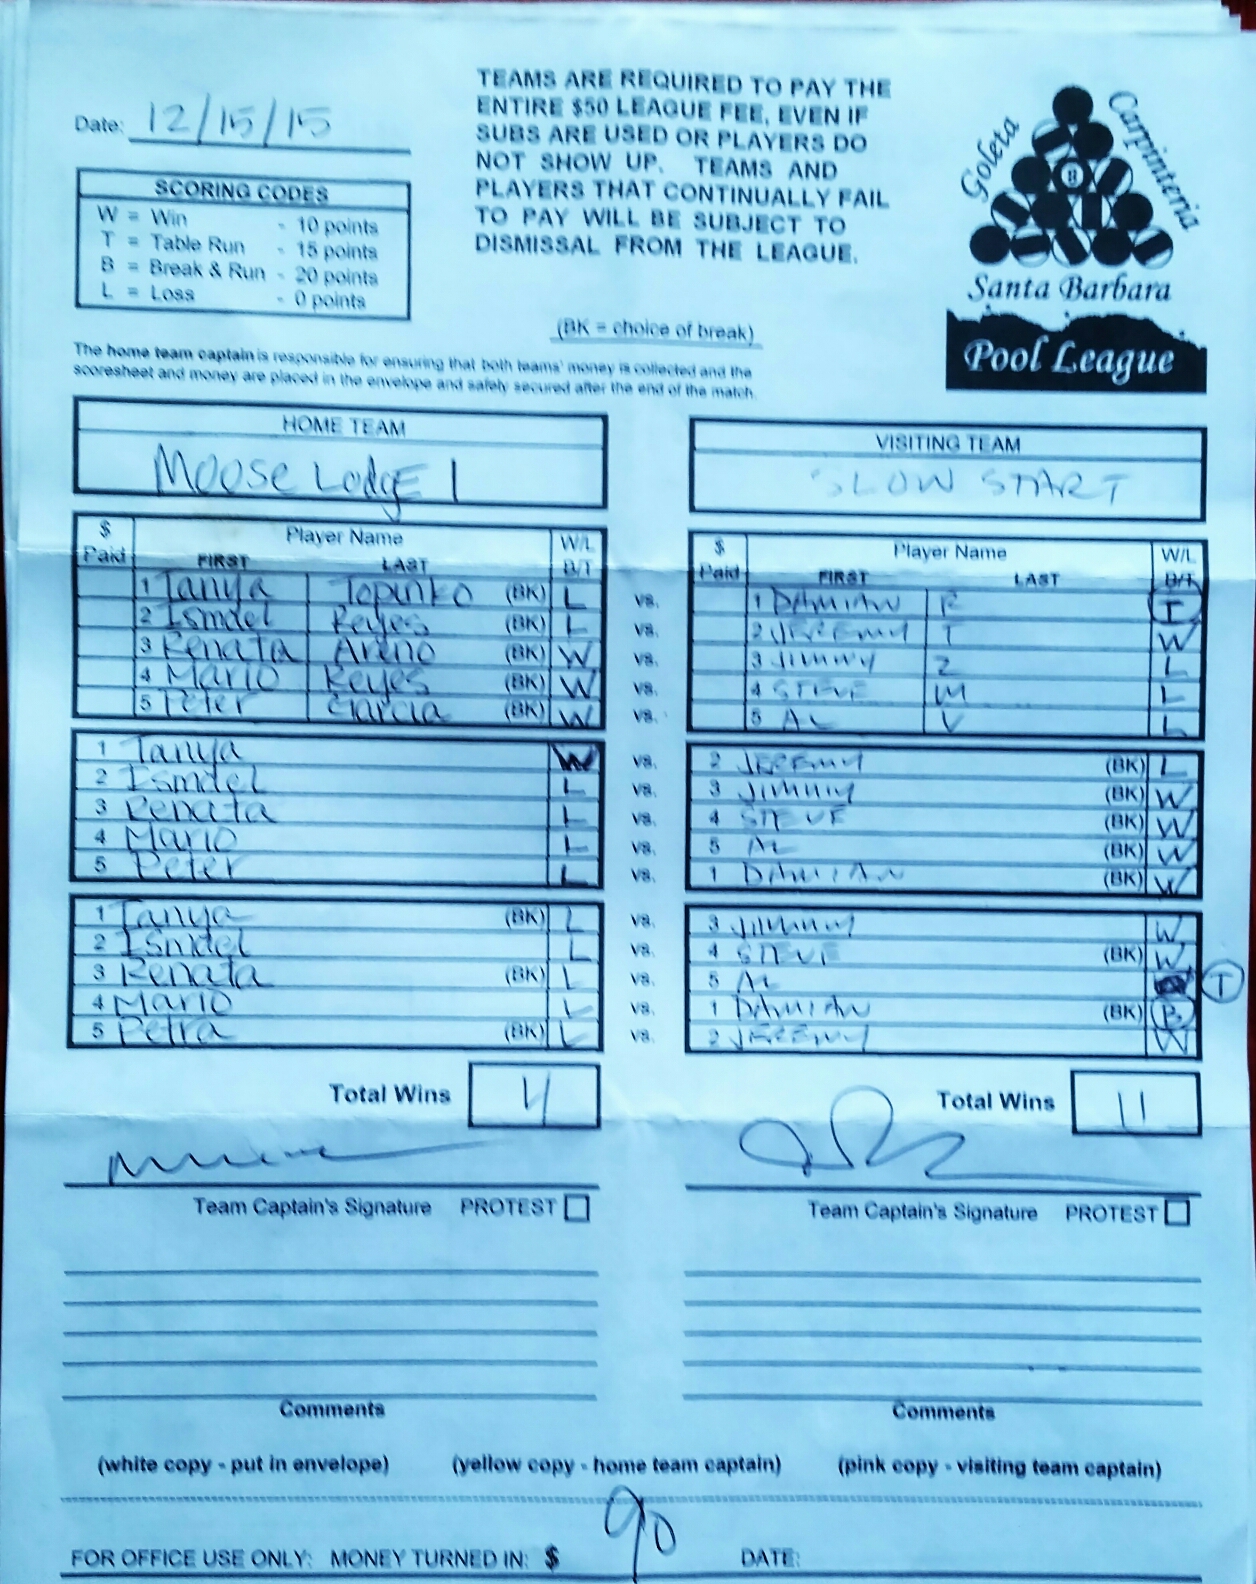 Date: 12/15/15
TEAMS ARE REQUIRED TO PAY THE
ENTIRE $50 LEAGUE FEE, EVEN IF
SUBS ARE USED OR PLAYERS DO
NOT SHOW UP. TEAMS AND
PLAYERS THAT CONTINUALLY FAIL
TO PAY WILL BE SUBJECT TO
DISMISSAL FROM THE LEAGUE.
Goleta
Carpinteria
8
Santa Barbara
Pool League
SCORING CODES
W = Win - 10 points
T = Table Run - 15 points
B = Break & Run - 20 points
L = Loss - 0 points
(BK = choice of break)
The home team captain is responsible for ensuring that both teams' money is collected and the
scoresheet and money are placed in the envelope and safely secured after the end of the match.
HOME TEAM
Moose Lodge 1
VISITING TEAM
SLOW START
$ Player Name W/L
Paid FIRST LAST B/T
$ Player Name W/L
Paid FIRST LAST B/T
1 Tanya Topinko (BK) L vs. 1 DAMIAN R T
2 Ismael Reyes (BK) L vs. 2 JEREMY T W
3 Renata Areno (BK) W vs. 3 JIMMY Z L
4 Mario Reyes (BK) W vs. 4 STEVE M L
5 Peter Garcia (BK) W vs. 5 AL V L
1 Tanya W vs. 2 JEREMY (BK) L
2 Ismael L vs. 3 JIMMY (BK) W
3 Renata L vs. 4 STEVE (BK) W
4 Mario L vs. 5 AL (BK) W
5 Peter L vs. 1 DAMIAN (BK) W
1 Tanya (BK) L vs. 3 JIMMY W
2 Ismael L vs. 4 STEVE (BK) W
3 Renata (BK) L vs. 5 AL T
4 Mario L vs. 1 DAMIAN (BK) B
5 Petra (BK) L vs. 2 JEREMY W
Total Wins 4
Total Wins 11
Team Captain's Signature PROTEST
Team Captain's Signature PROTEST
Comments
Comments
(white copy - put in envelope) (yellow copy - home team captain) (pink copy - visiting team captain)
FOR OFFICE USE ONLY: MONEY TURNED IN: $ 90 DATE: